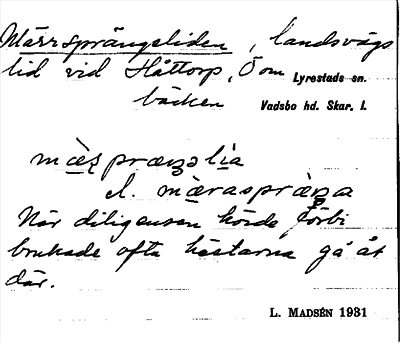 Märrsprängsliden, landsvägs
lid vid Håttorp, Ö om Lyrestads sn.
bäcken Vadsbo hd. Skar. l.
mæ̀ʂpræŋəlìa
el. mæ̀raspræ̀ŋa
När diligensen körde förbi
brukade ofta hästarna gå åt
där.
L. MADSÉN 1931